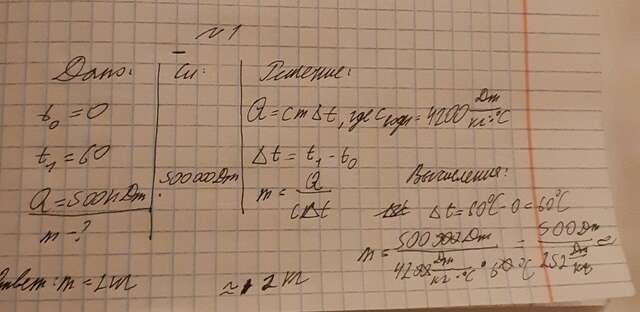 №1
Дано:
t₀ = 0
t₁ = 60
Q = 500кДж
m - ?
Си:
500000Дж
Решение:
Q = cmΔt, где c воды = 4200 Дж/кг·°C
Δt = t₁ - t₀
m = Q/cΔt
Вычисления:
Δt = 60°C - 0 = 60°C
m = 500000Дж/4200 Дж/кг·°C · 60°C = 500Дж/252 Дж/кг ≈
≈ 2кг
Ответ: m = 2кг